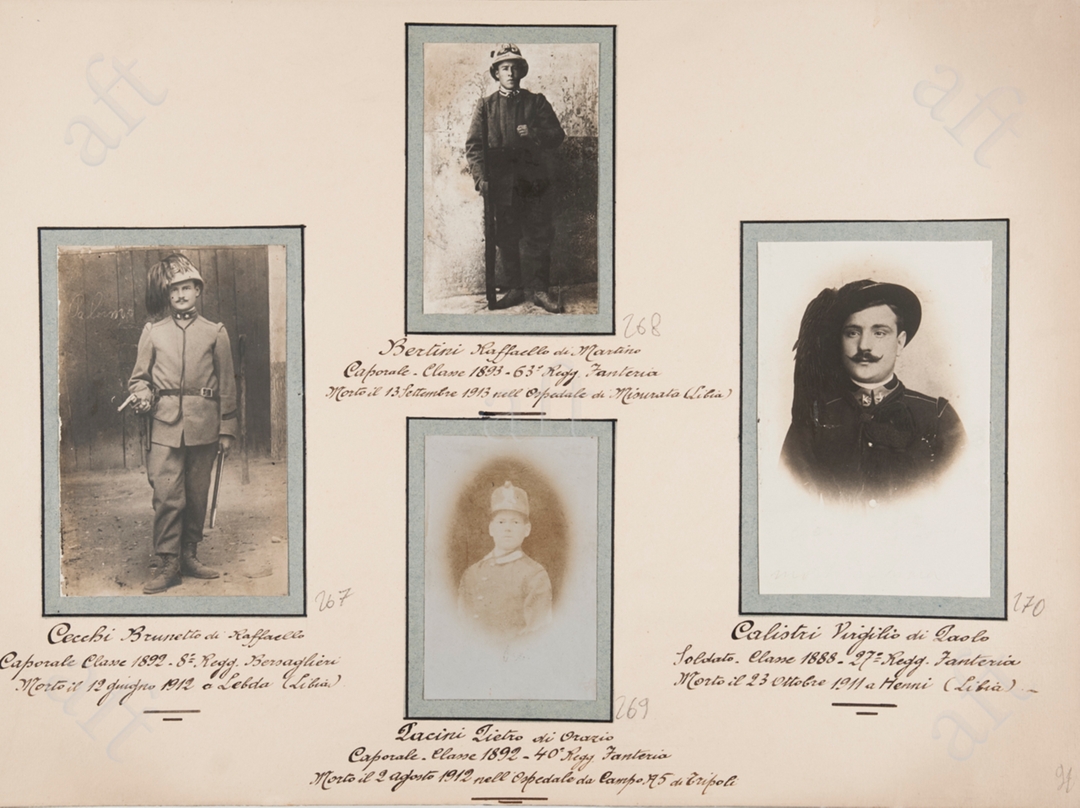 Bertini Raffaello di Martino
Caporale - Classe 1893 - 63° Regg. Fanteria
Morto il 13 Settembre 1913 nell'Ospedale di Misurata (Libia)
268
Cecchi Brunetto di Raffaello
Caporale Classe 1892 - 8° Regg. Bersaglieri
Morto il 12 giugno 1912 a Lebda (Libia)
267
Pacini Pietro di Orazio
Caporale - Classe 1892 - 40° Regg. Fanteria
Morto il 2 agosto 1912 nell'Ospedale da Campo N5 di Tripoli
269
Calistri Virgilio di Paolo
Soldato - Classe 1888 - 27° Regg. Fanteria
Morto il 23 Ottobre 1911 a Henni (Libia)
270
aft
aft
aft
aft